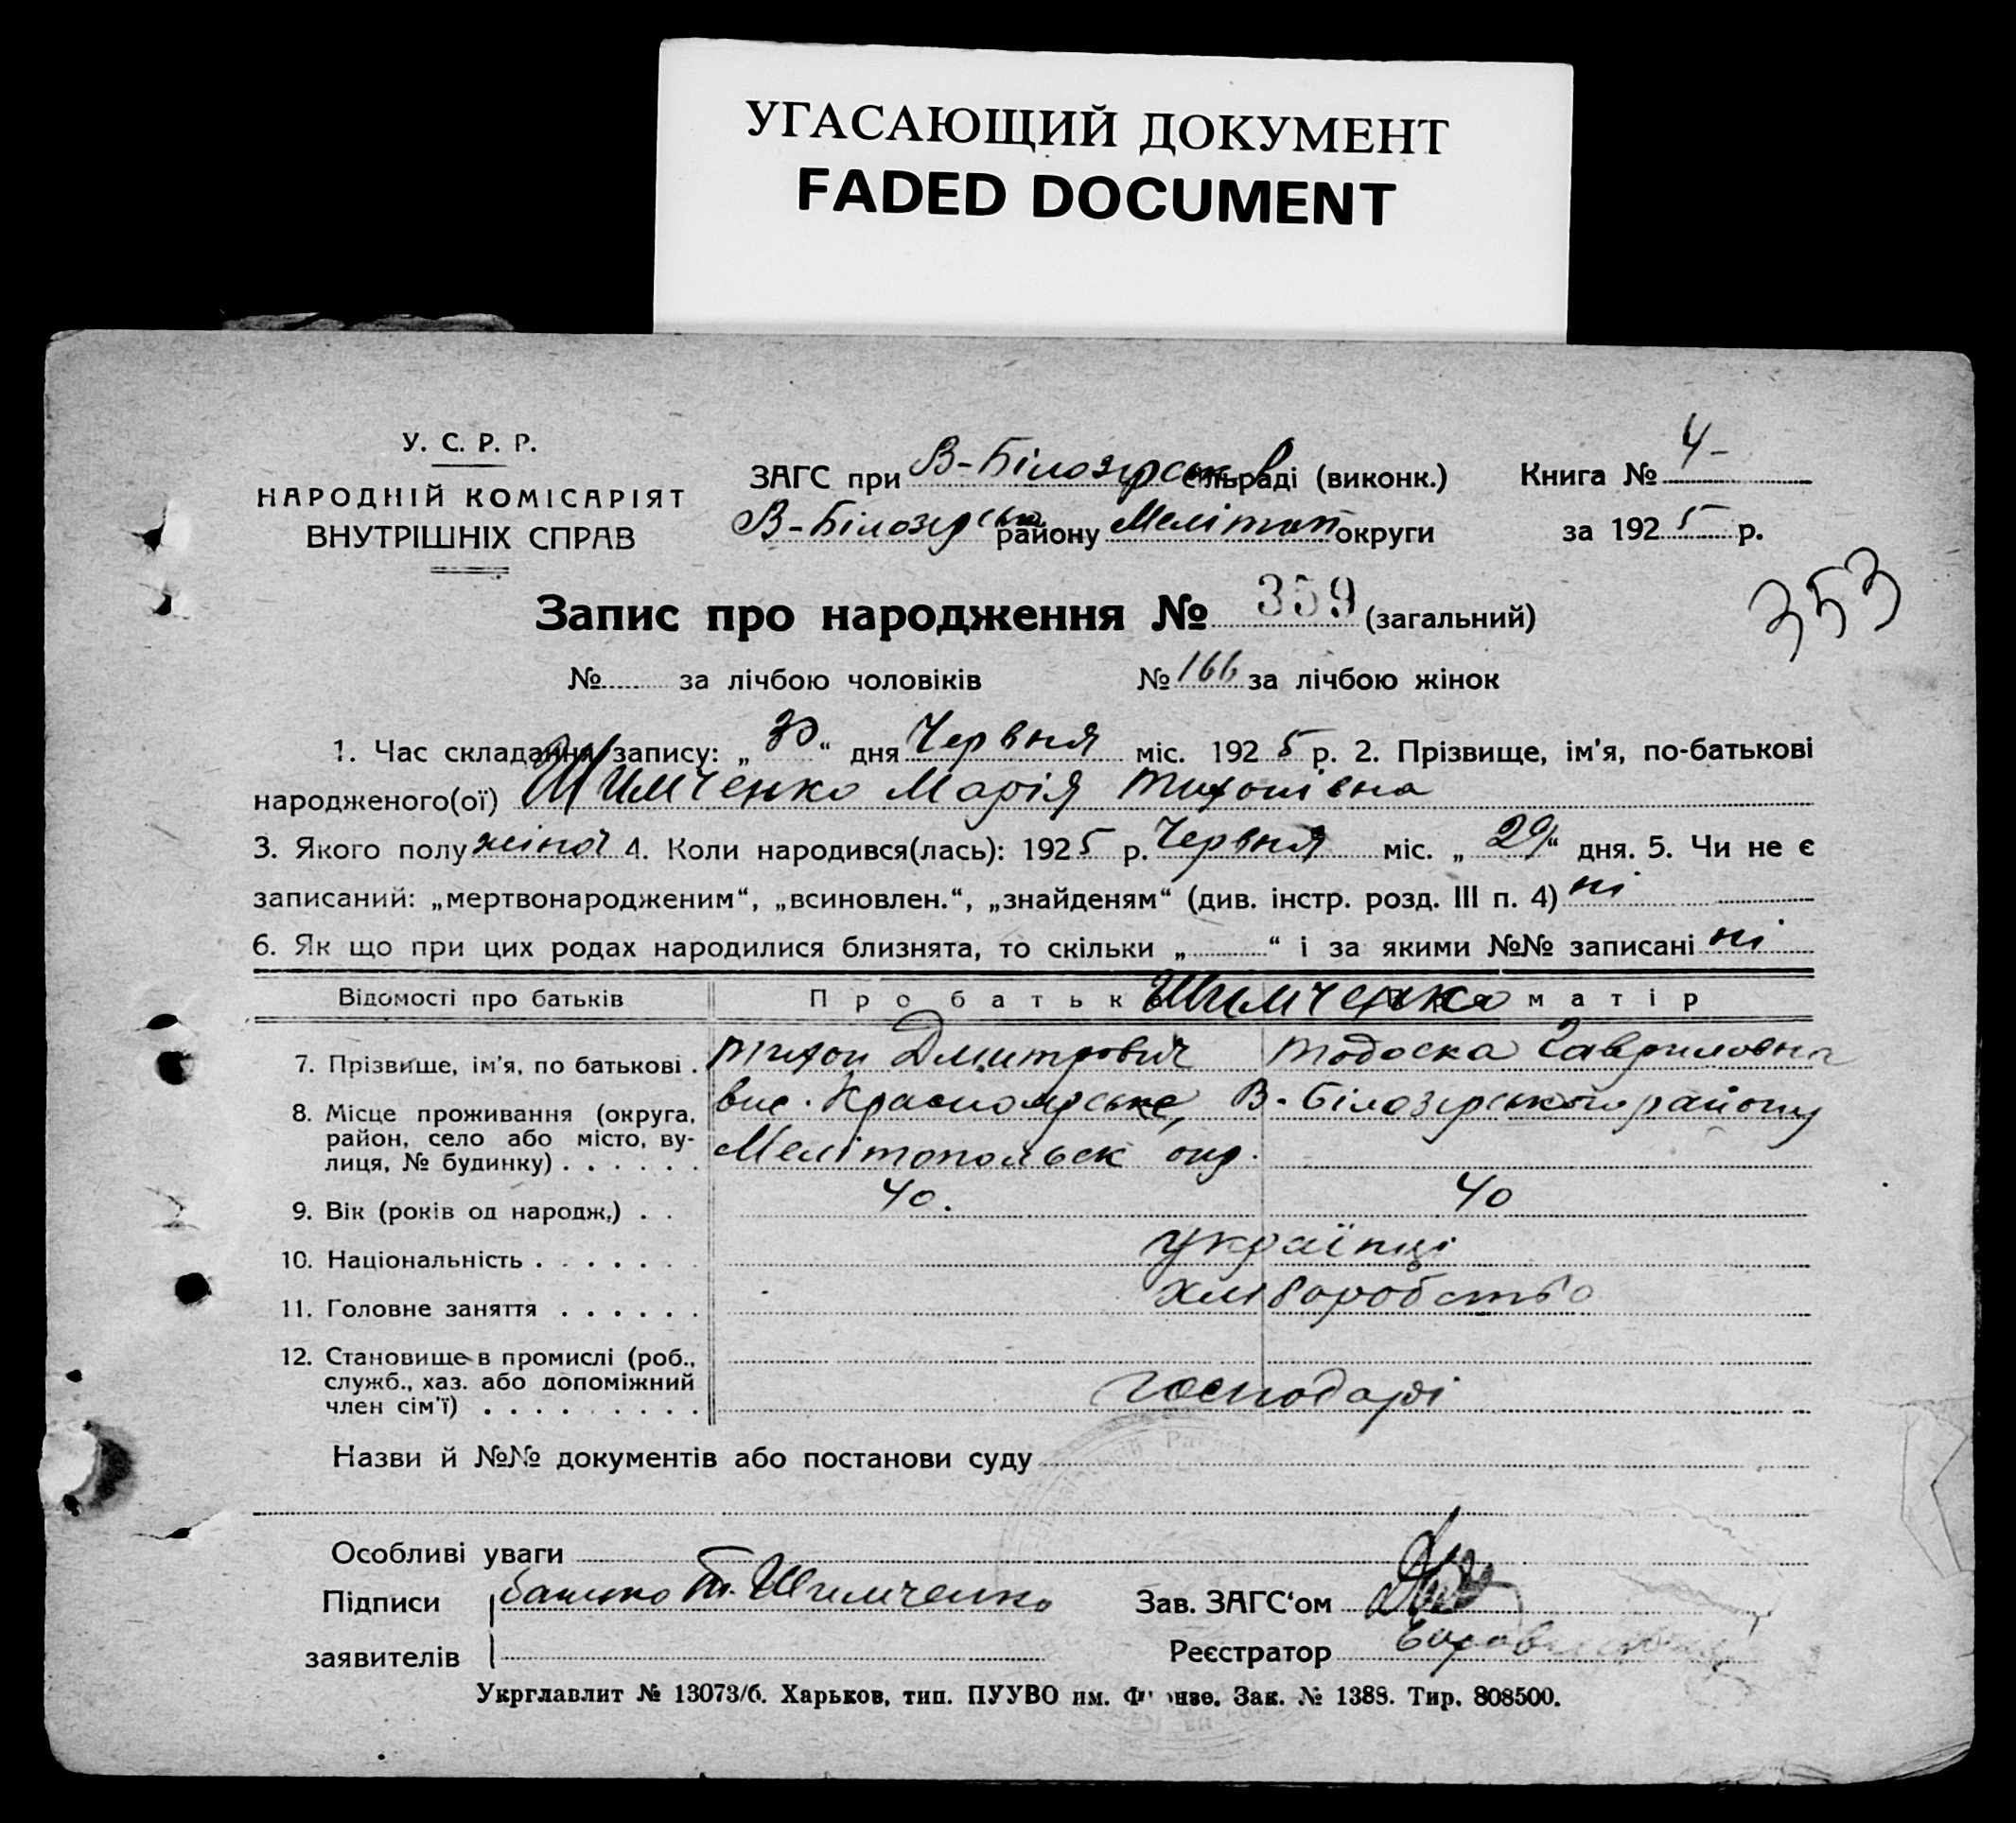 УГАСАЮЩИЙ ДОКУМЕНТ
FADED DOCUMENT
У. С. Р. Р.
НАРОДНІЙ КОМІСАРІЯТ
ВНУТРІШНІХ СПРАВ
ЗАГС при В-Білозірськ сільраді (виконк.)
В-Білозірськ району Мелітоп округи
Книга № 4-
за 1925 р.
353
Запис про народження № 359 (загальний)
№ за лічбою чоловіків № 166 за лічбою жінок
1. Час складання запису: „30“ дня Червня міс. 1925 р. 2. Прізвище, ім'я, по-батькові
народженого(ої) Шимченко Марія Тихонівна
3. Якого полу жіноч 4. Коли народився(лась): 1925 р. Червня міс. „29“ дня. 5. Чи не є
записаний: „мертвонародженим“, „всиновлен.“, „знайденям“ (див. інстр. розд. III п. 4) ні
6. Як що при цих родах народилися близнята, то скільки „ “ і за якими №№ записані ні
Відомості про батьків Про батьк Шимченко матір
7. Прізвище, ім'я, по батькові . Тихон Дмитрович Тодоска Гавриловна
8. Місце проживання (округа, вис. Красноярське, В-Білозірського району
район, село або місто, ву-
лиця, № будинку) . . . . . . Мелітопольск окр.
9. Вік (років од народж,) . . 40. 40
10. Національність . . . . . . . українці
11. Головне заняття . . . . . . хліборобство
12. Становище в промислі (роб.,
служб., хаз. або допоміжний
член сім'ї) . . . . . . . . . господарі
Назви й №№ документів або постанови суду
Особливі уваги
Підписи батько Т. Шимченко Зав. ЗАГС‘ом
заявителів Реєстратор
Укрглавлит № 13073/б. Харьков, тип. ПУУВО им. Фрунзе. Зак. № 1388. Тир. 808500.